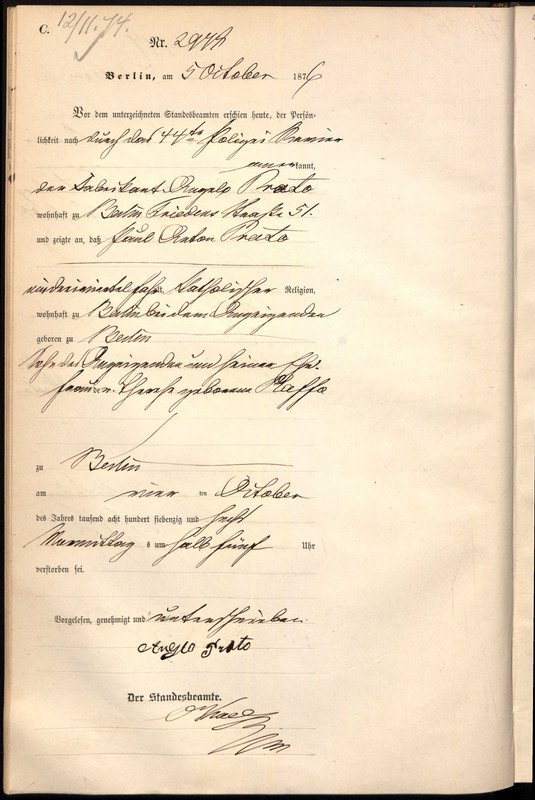 C.
12/11. 74.
Nr. 2978
Berlin, am 5 October 1876
Vor dem unterzeichneten Standesbeamten erschien heute, der Persön-
lichkeit nach durch das 44te Polizei Revier
anerkannt,
der Fabrikant Angelo Prato
wohnhaft zu Berlin Friedens Straße 51.
und zeigte an, daß Paul Anton Prato
ein dreiviertel Jahr alt, katholischer Religion,
wohnhaft zu Berlin bei dem Anzeigenden
geboren zu Berlin
Sohn des Anzeigenden und seiner Ehe-
frau geborenen Raffo
zu Berlin
am vier ten October
des Jahres tausend acht hundert siebenzig und sechs
Vormittags um halb fünf Uhr
verstorben sei.
Vorgelesen, genehmigt und unterschrieben
Angelo Prato
Der Standesbeamte.